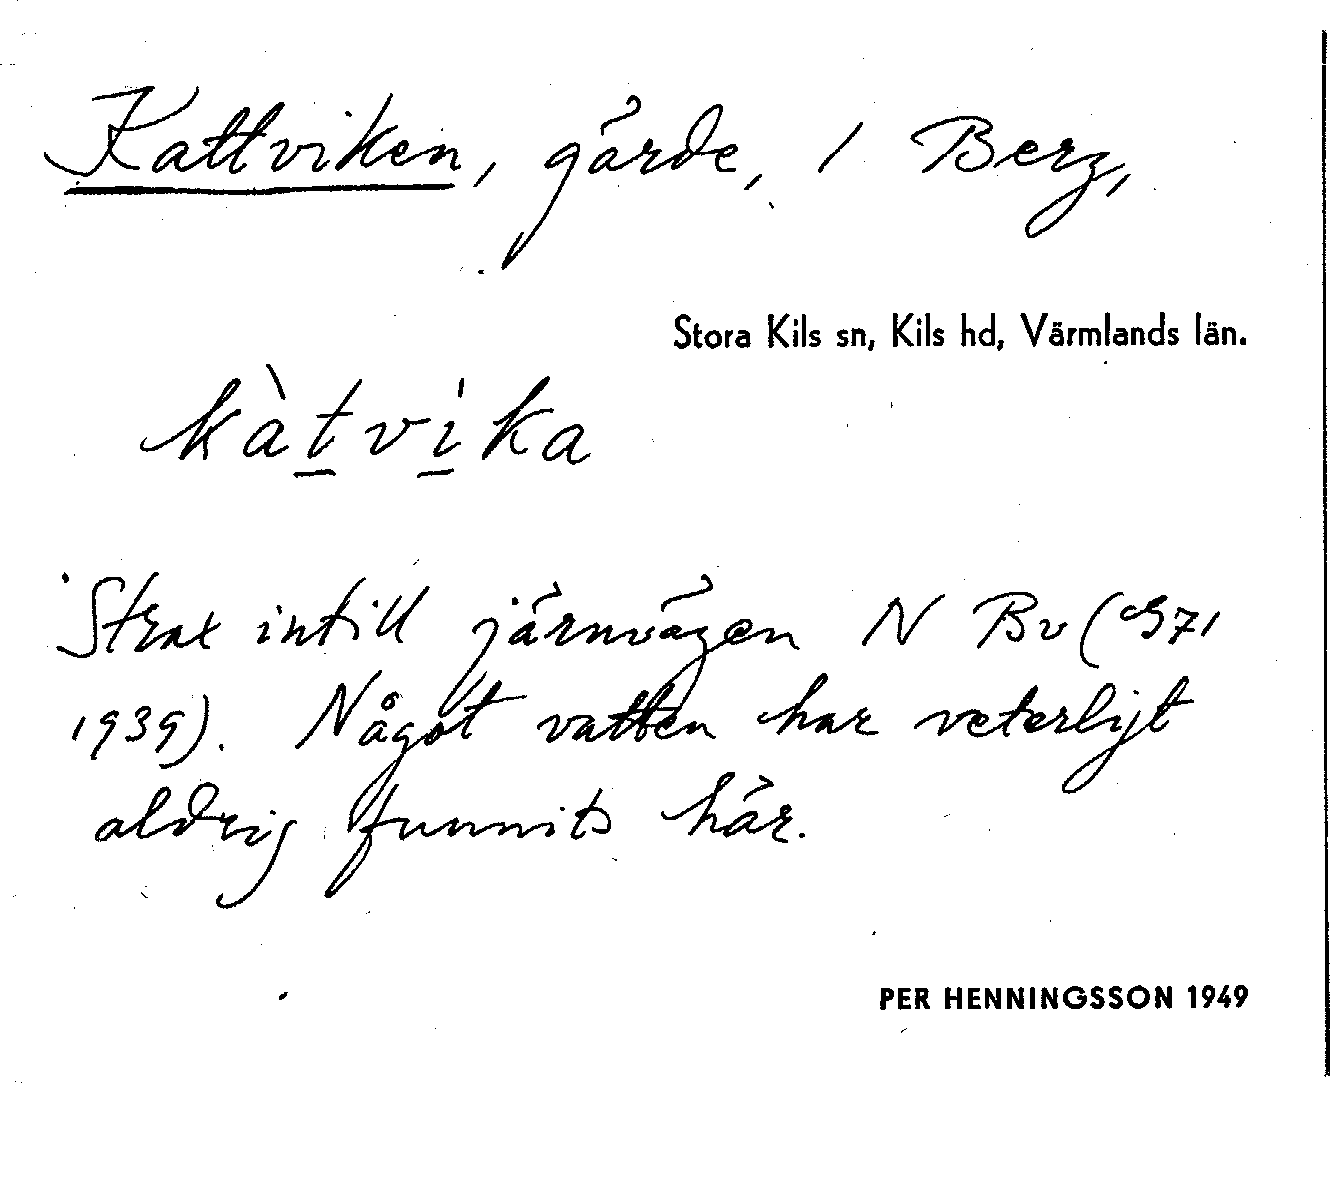 Kattviken, gärde, 1 Berg,
Stora Kils sn, Kils hd, Värmlands län.
kàt̲vi̲ka
Strax intill järnvägen N Bv (GS71
1939). Något vatten har veterligt
aldrig funnits här.
PER HENNINGSSON 1949